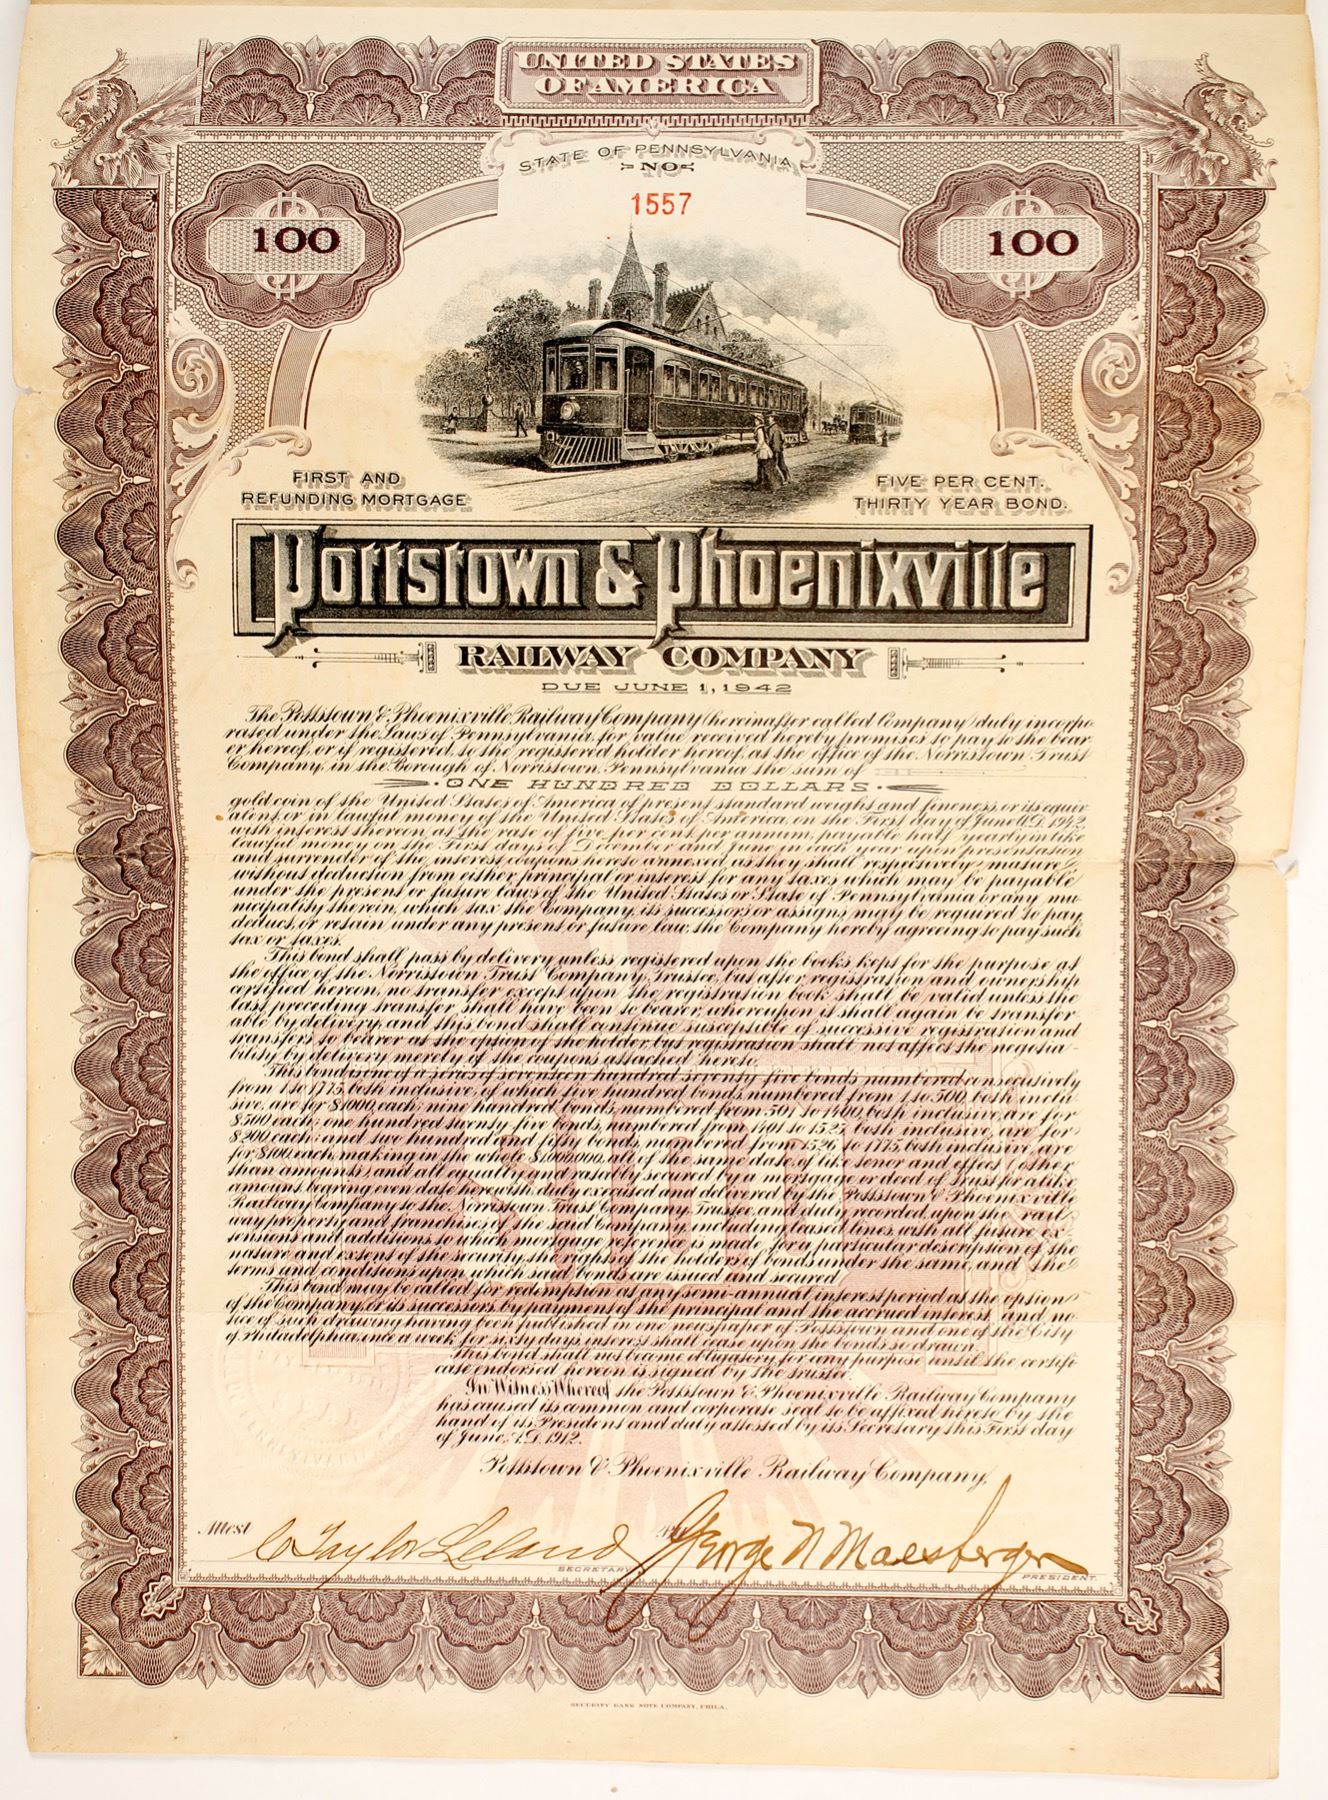 UNITED STATES
OF AMERICA
STATE OF PENNSYLVANIA
NO
1557
100
100
FIRST AND
REFUNDING MORTGAGE
FIVE PER CENT.
THIRTY YEAR BOND.
Pottstown & Phoenixville
RAILWAY COMPANY
DUE JUNE 1, 1942
The Pottstown & Phoenixville Railway Company (hereinafter called Company) duly incorpo-
rated under the Laws of Pennsylvania, for value received hereby promises to pay to the bear
er hereof, or if registered, to the registered holder hereof, at the office of the Norristown Trust
Company, in the Borough of Norristown, Pennsylvania the sum of
ONE HUNDRED DOLLARS
gold coin of the United States of America of present standard weight and fineness, or its equiv-
alent, or in lawful money of the United States of America, on the First day of June A.D. 1942,
with interest thereon, at the rate of five per cent per annum, payable half-yearly in like
lawful money on the First days of December and June in each year upon presentation
and surrender of the interest coupons hereto annexed as they shall respectively mature,
without deduction from either principal or interest for any taxes which may be payable
under the present or future laws of the United States or State of Pennsylvania or any mu-
nicipality therein, which tax the Company, its successors or assigns may be required to pay,
deduct, or retain under any present or future law, the Company hereby agreeing to pay such
tax or taxes.
This bond shall pass by delivery unless registered upon the books kept for the purpose at
the office of the Norristown Trust Company, Trustee, but after registration and ownership
certified hereon, no transfer except upon the registration book shall be valid unless the
last preceding transfer shall have been to bearer, whereupon it shall again be transfer-
able by delivery, and this bond shall continue susceptible of successive registration and
transfers to bearer at the option of the holder, but registration shall not affect the negotia-
bility by delivery merely of the coupons attached hereto.
This bond is one of a series of seventeen hundred seventy-five bonds numbered consecutively
from 1 to 1775, both inclusive, of which five hundred bonds, numbered from 1 to 500, both inclu-
sive, are for $1000, each; nine hundred bonds, numbered from 501 to 1400, both inclusive, are for
$500 each; one hundred twenty-five bonds, numbered from 1401 to 1525, both inclusive, are for
$200 each; and two hundred and fifty bonds, numbered from 1526 to 1775, both inclusive, are
for $100, each, making in the whole $1,000,000, all of the same date, of like tenor and effect (other
than amounts) and all equally and ratably secured by a mortgage or deed of trust for a like
amount, bearing even date herewith, duly executed and delivered by the Pottstown & Phoenixville
Railway Company to the Norristown Trust Company, Trustee, and duly recorded, upon the rail-
way property and franchises of the said Company, including leased lines, with all future ex-
tensions and additions, to which mortgage reference is made for a particular description of the
nature and extent of the security, the rights of the holders of bonds under the same, and the
terms and conditions upon which said bonds are issued and secured.
This bond may be called for redemption at any semi-annual interest period at the option
of the Company, or its successors by payment of the principal and the accrued interest, and no-
tice of such drawing having been published in one newspaper of Pottstown and one of the City
of Philadelphia, once a week for sixty days, interest shall cease upon the bonds so drawn.
This bond shall not become obligatory for any purpose until the certifi-
cate endorsed hereon is signed by the trustee.
In Witness Whereof the Pottstown & Phoenixville Railway Company
has caused its common and corporate seal to be affixed hereto, by the
hand of its President and duly attested by its Secretary this First day
of June, A.D. 1912.
Pottstown & Phoenixville Railway Company,
Attest C Taylor Leland By George N Malsberger
SECRETARY PRESIDENT.
SECURITY BANK NOTE COMPANY, PHILA.